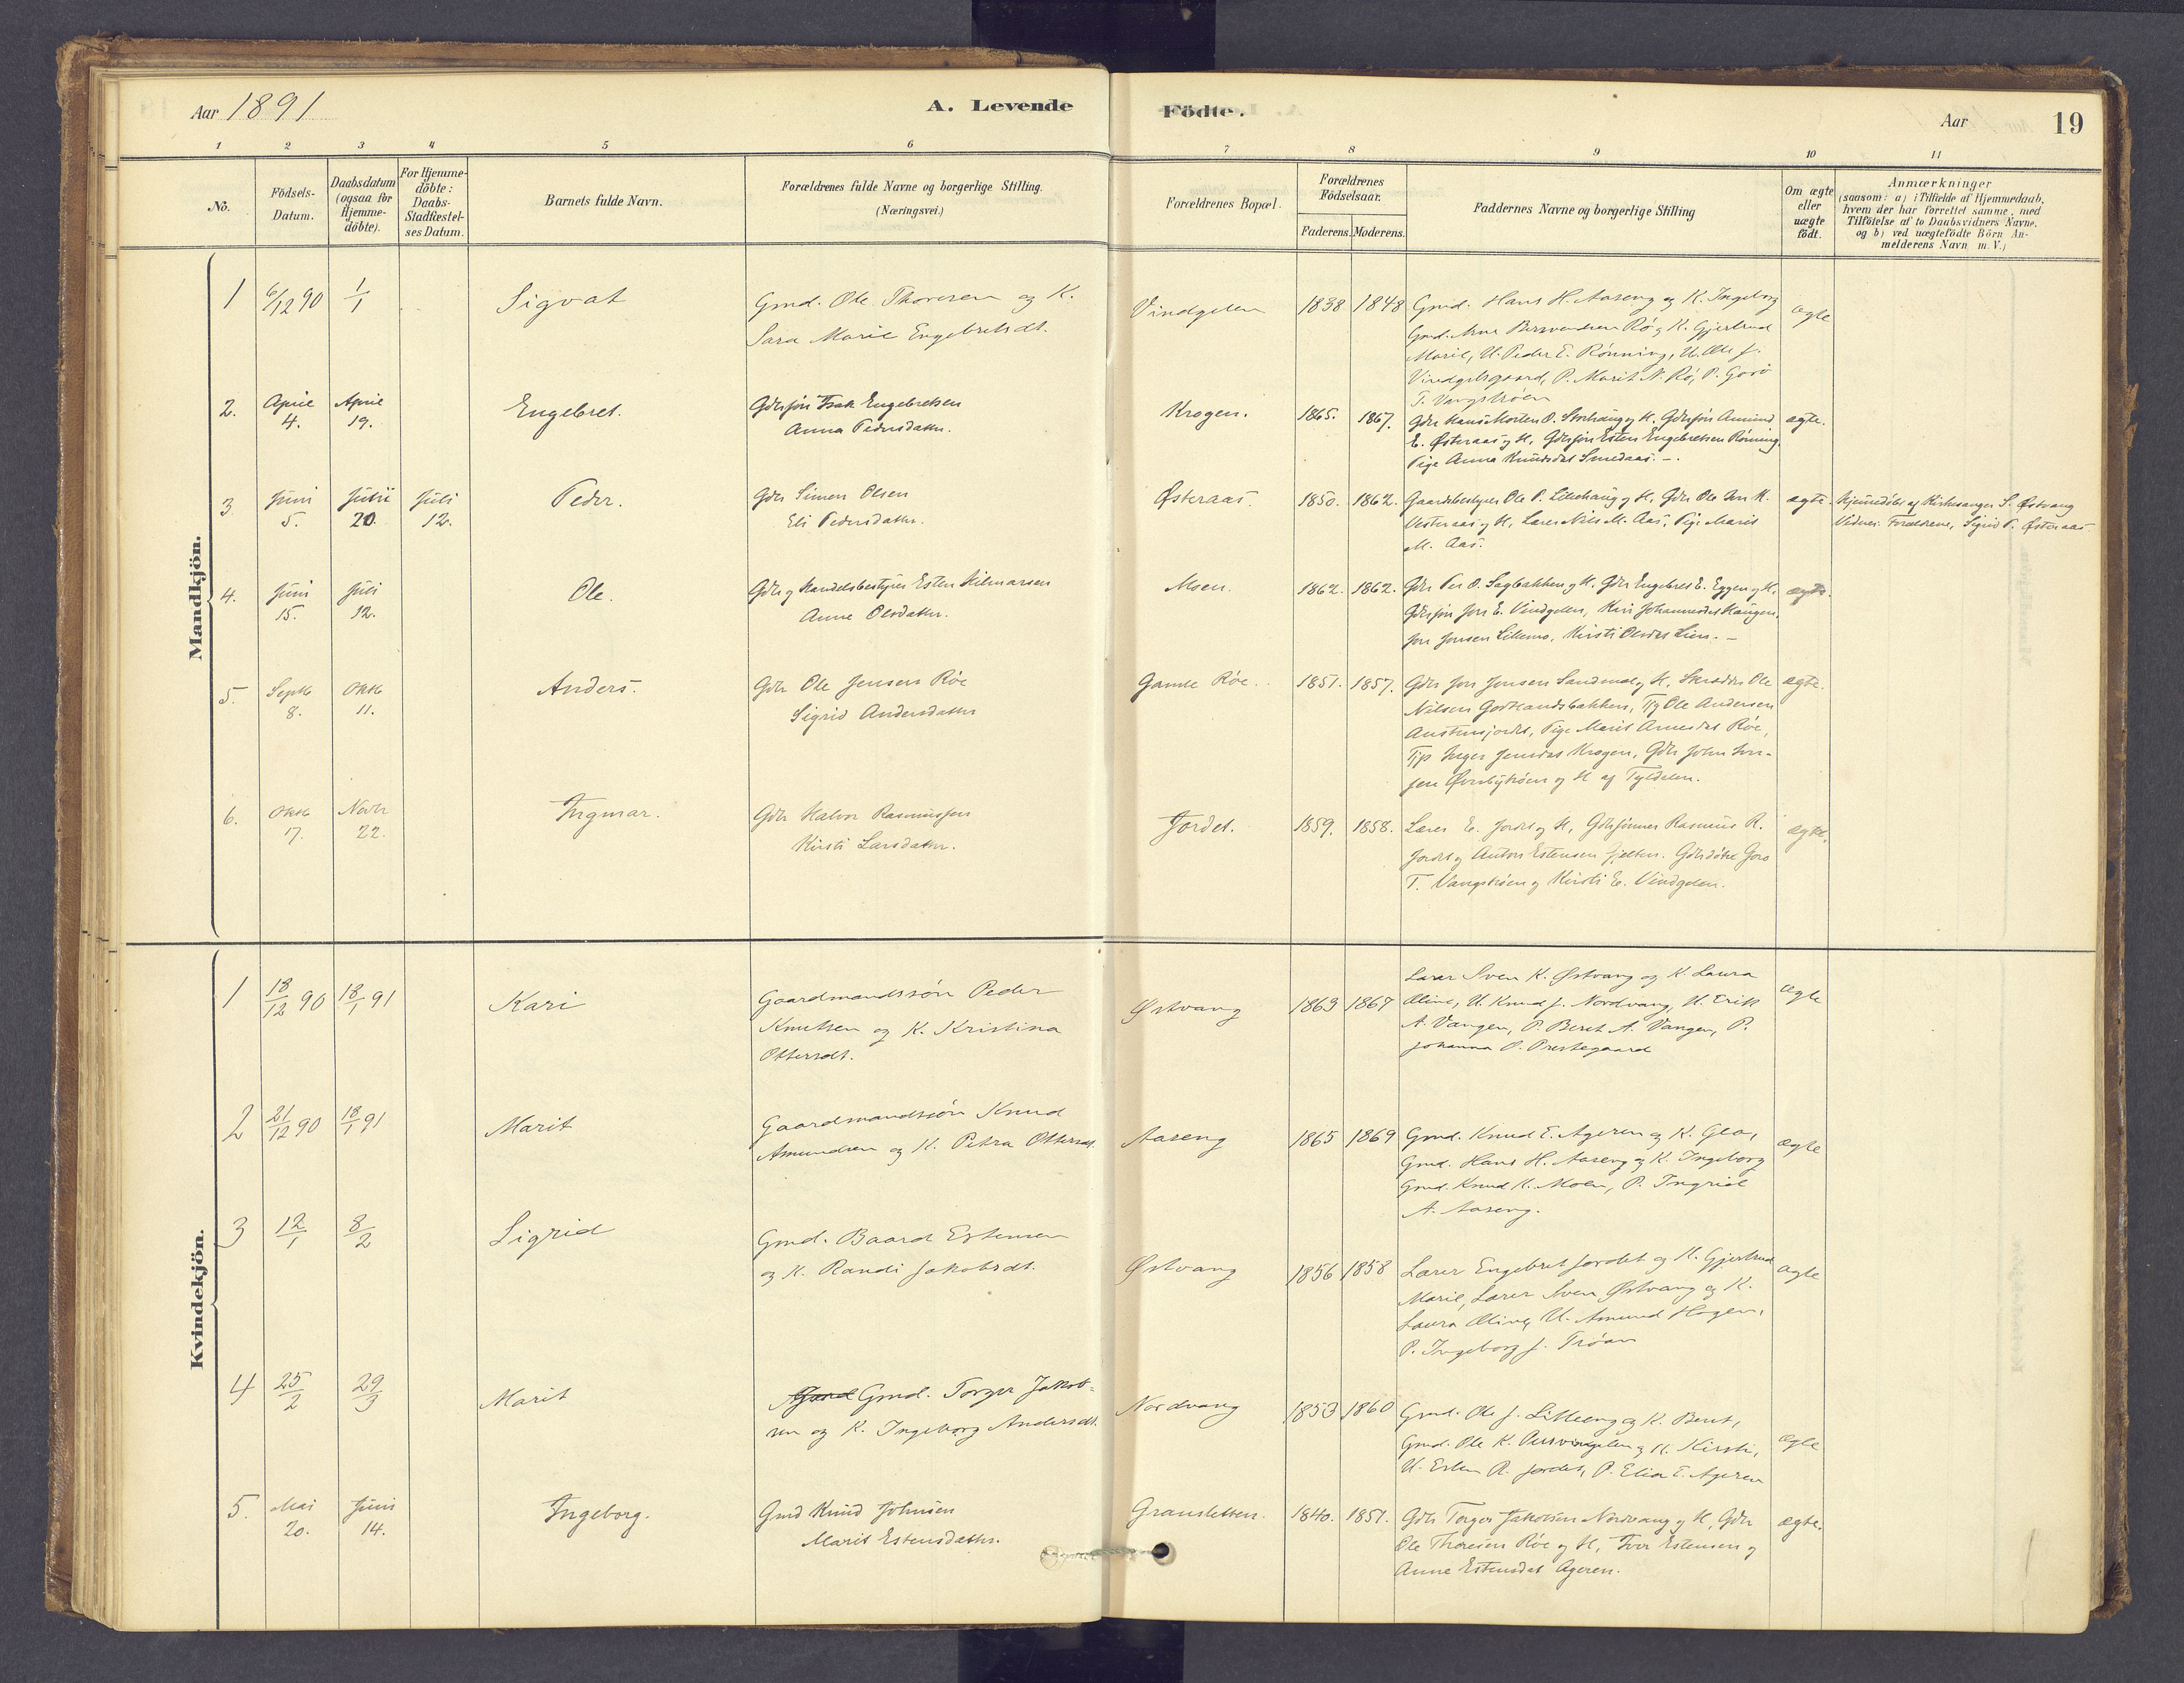 Aar 1891
A. Levende Födte.
Aar
19
1 2 3 4 5 6 7 8 9 10 11
No.
Födsels-Datum.
Daabsdatum (ogsaa for Hjemme-döbte).
For Hjemme-döbte: Daabs-Stadfæstel-ses Datum.
Barnets fulde Navn.
Forældrenes fulde Navne og borgerlige Stilling.
(Næringsvei.)
Forældrenes Bopæl.
Forældrenes Födselsaar.
Faderens. Moderens.
Faddernes Navne og borgerlige Stilling
Om ægte eller uægte födt.
Anmærkninger
(saasom: a) i Tilfælde af Hjemmedaab,
hvem der har forrettet samme, med
Tilföielse af to Daabsvidners Navne,
og b) ved uægtefödte Börn An-
melderens Navn m. V.)
Mandkjön.
1 6/12 90 1/1 Sigvat Gmd. Ole Thoresen og K. Vindgelen 1838 1848 Gmd. Hans H. Aaseng og K. Ingeborg ægte
Sara Marie Engebretsdt. Gmd. Arne Rø og K. Gjertrud
Marie, U. Peder E. Rønning, U. Ole J.
Vindgelsgaard, P. Marit N. Rø, P. Goro
T. Vangstrøen
2. April 4. April 19. Engebret. Gdrsjøn Isak Engebretsen Krogen. 1865. 1867. Gdr Hans Morten O. Storhaug og H. Gdrsjøn Amund ægte.
Anna Pedersdatter. E. Østeraas og H. Gdrsjøn Esten Engebretsen Rønning,
Pige Anna Knudsdat Smedaas. -.
3 Juni 5. Juli 20. Juli 12. Peder. Gdr Simen Olsen Østeraas. 1850. 1862. Gaardbestyrer Ole P. Lillehaug og H, Gdr Ole H. ægte. Hjemmedöbt af Kirkesanger S. Østvang
Eli Pedersdatter. Vesteraas og H, Lærer Nils M. Aas, Pige Marit Vidner: Forældrene, Sigrid P. Østeraas
M. Aas.
4. Juni 15. Juli 12. Ole. Gdr og Handelsbestyrer Esten Hilmarsen Moen. 1862. 1862. Gdr Per O. Sagbakken og H. Gdr Engebret E. Eggen og H. ægte.
Anne Olsdatter. Gdrsjøn Jon E. Vindgelen, Kari Johannesdat Haugen,
Jon Jonsen Lillemo, Kirsti Olsdat Lien. -
5. Septb 8. Oktb 11. Anders. Gdr Ole Jensen Røe Gamle Røe. 1851. 1857. Gdr Jon Jonsen Sandmel og H. Skrædder Ole ægte.
Sigrid Andersdatter Nilsen Godtlandsbakken, Tj Ole Andersen
Austensjordet, Pige Marit Arnesdat Røe,
Tjp Inger Jensdat Krogen, Gdr John
Øvrebytrøen og H af Tyldalen.
6. Oktb 17. Novbr 22. Ingmar. Gdr Halvor Rasmussen Jordet. 1859. 1858. Lærer E. Jordet og H, Gdrsjønner Rasmus R. ægte.
Kirsti Larsdatter. Jordet og Anton Estensen Fjelten. Gdrsdøtre Goro
T. Vangstrøen og Kirsti E. Vindgelen.
Kvindekjön.
1 18/12 90 18/1 91 Kari Gaardmandssøn Peder Østvang 1863 1867 Lærer Sven K. Østvang og K. Laura ægte
Knutsen og K. Kristina Oline, U. Knud J. Nordvang, U. Erik
Ottersdt. A. Vangen, P. Beret A. Vangen, P.
Johanna O. Prestegaard
2 21/12 90 18/1 91 Marit Gaardmandssøn Knud Aaseng 1865 1869 Gmd. Knud E. Ageren og K. Gloa, ægte
Amundsen og K. Petra Ottersdt. Gmd. Hans H. Aaseng og K. Ingeborg
Gmd. Knud K. Moen, P. Ingrid
A. Aaseng.
3 12/1 8/2 Sigrid Gmd. Baard Estensen Østvang 1856 1858 Lærer Engebret Jordet og K. Gjertrud ægte
og K. Randi Jakobsdt. Marie, Lærer Sven Østvang og K.
Laura Oline, U. Amund Hagen,
P. Ingeborg J. Trøan
4 25/2 29/3 Marit Gmd. Torger Jakob- Nordvang 1853 1860 Gmd. Ole J. Lilleeng og K. Beret, ægte
sen og K. Ingeborg Andersdt. Gmd. Ole K. Ousvingelen og K. Kirsti,
U. Esten R. Jordet, P. Elia E. Ageren
5. Mai 20. Juni 14. Ingeborg. Gmd Knud Johnsen Gransletten. 1840. 1851. Gdr Torger Jakobsen Nordvang og H, Gdr ægte.
Marit Estensdatter. Ole Thoresen Røe og H, Iver Estensen og
Anne Estensdat Ageren.